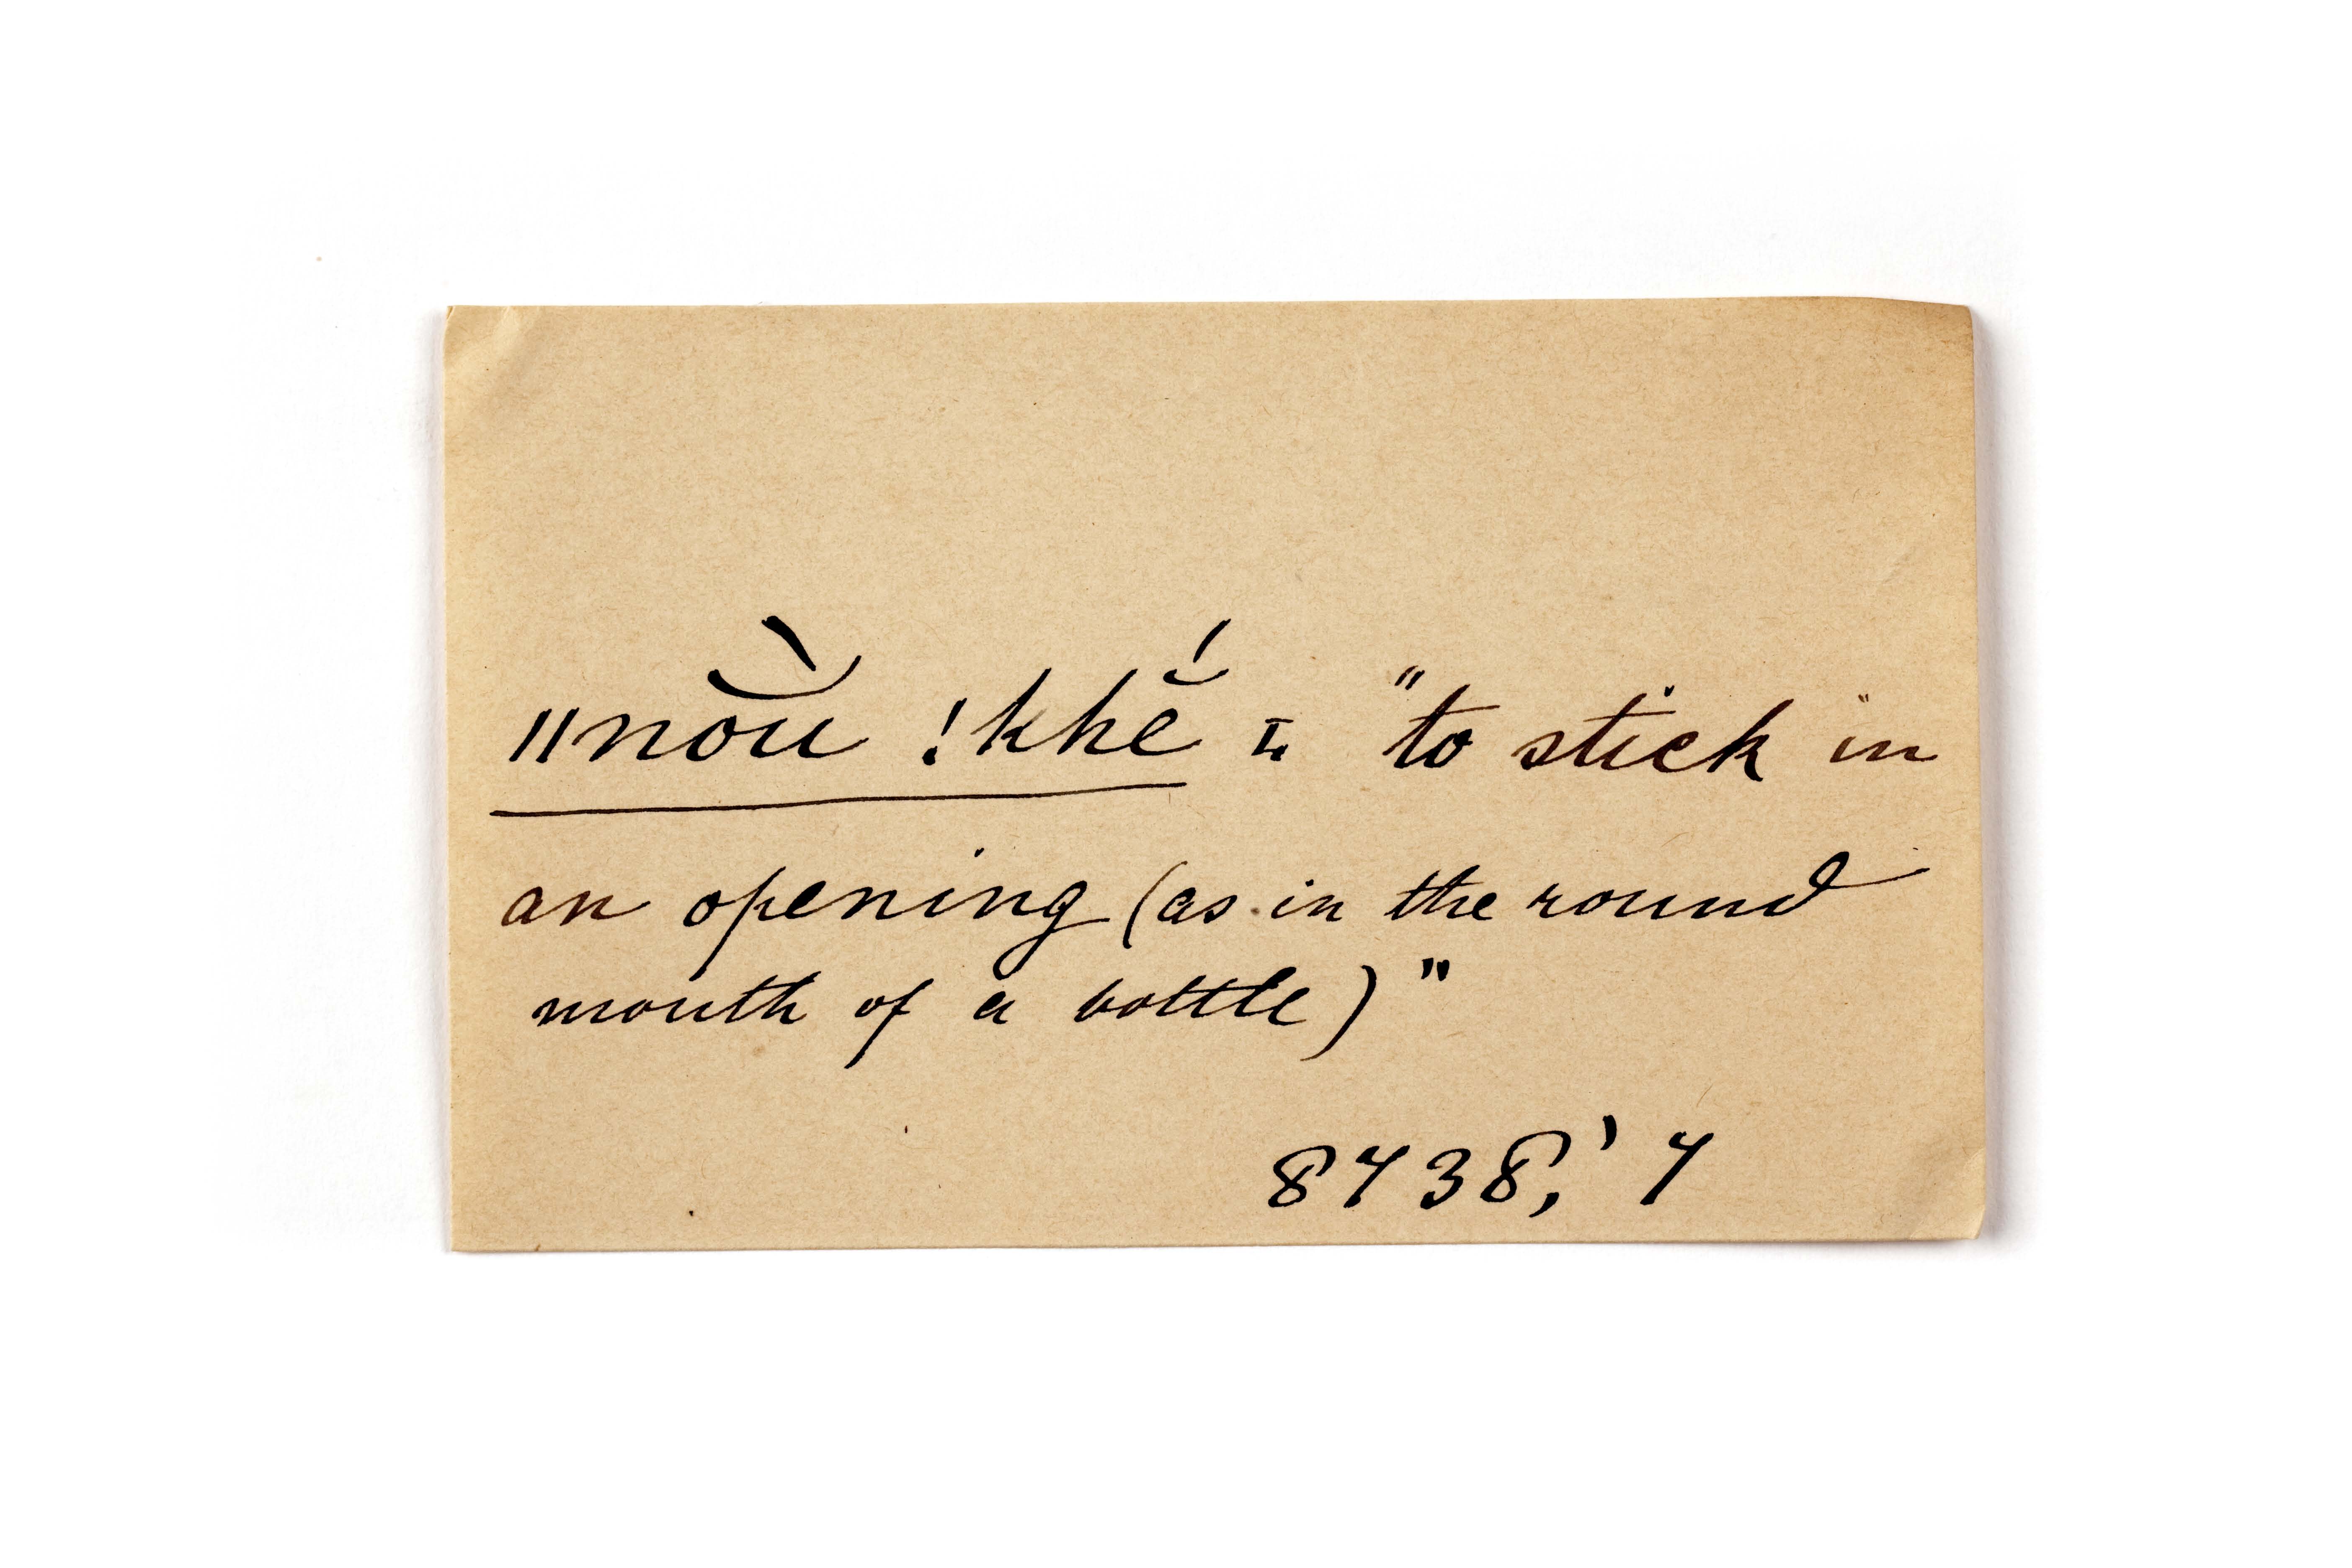 ǁno͝ù !khé̆ = "to stick in
an opening (as in the round
mouth of a bottle)"
8738,' 7